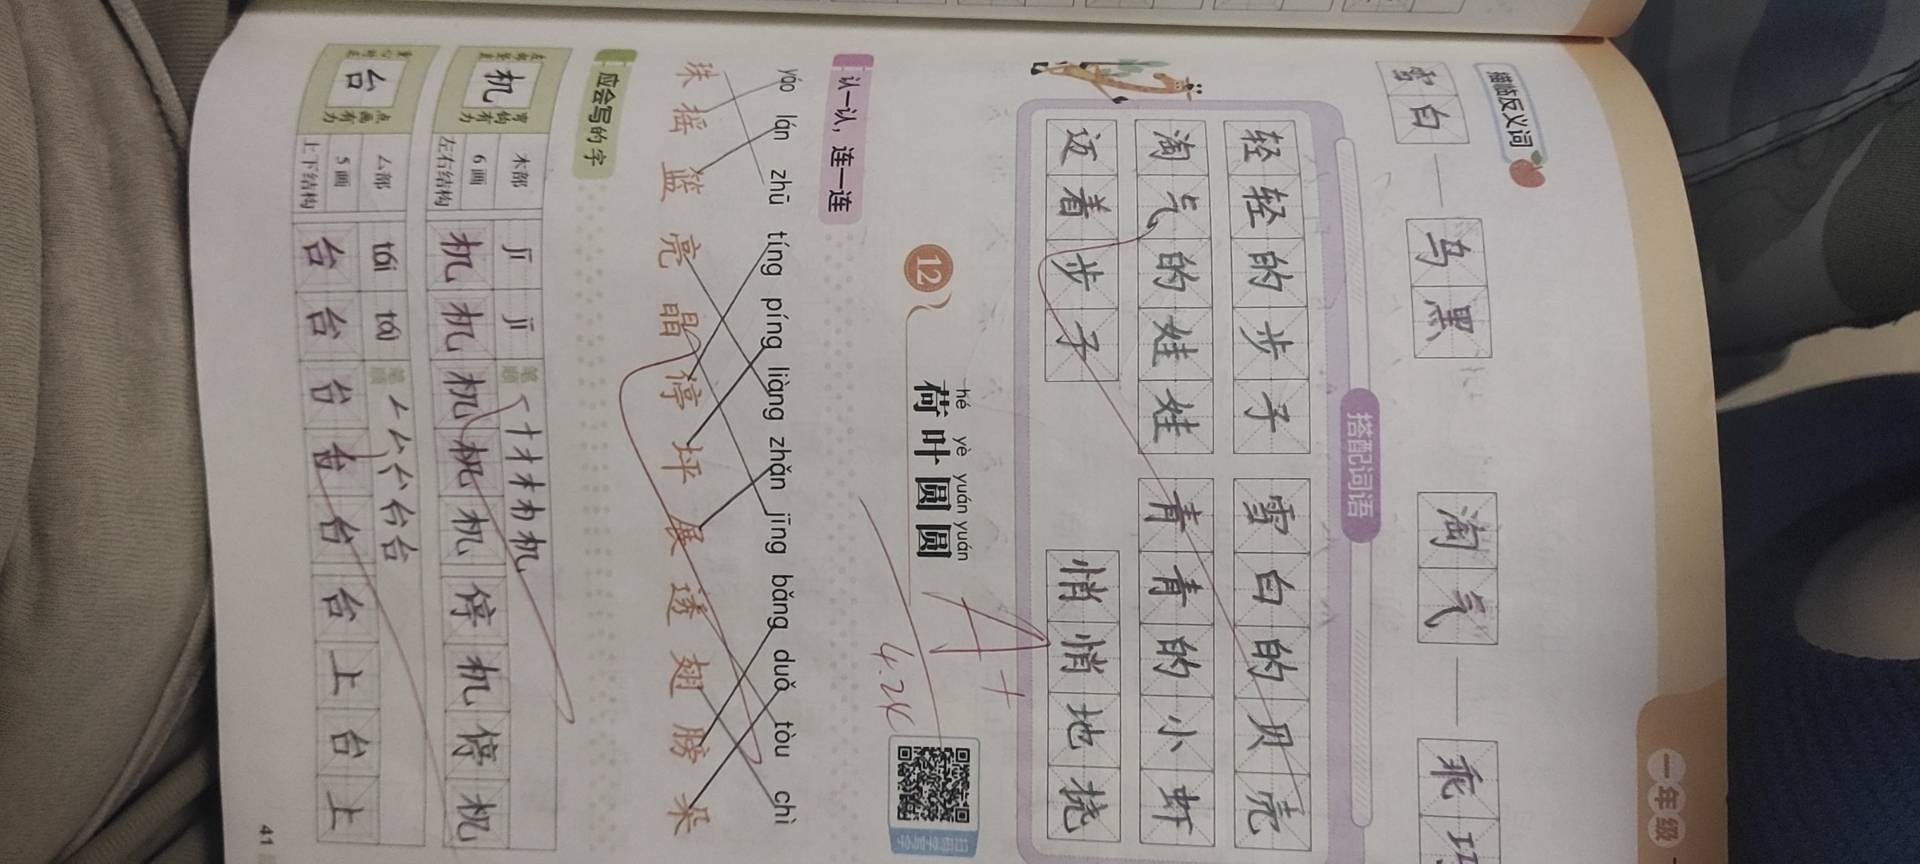 一年级
描临反义词
雪白 — 乌黑 淘气 — 乖巧
搭配词语
轻轻的步子 雪白的贝壳
淘气的娃娃 青青的小虾
迈着步子 悄悄地挠
A+
hé yè yuán yuán
12 荷叶圆圆
4.24
认一认，连一连
yáo lán zhū tíng píng liàng zhǎn jīng bǎng duǒ tòu chì
珠 摇 篮 亮 晶 停 坪 展 透 翅 膀 朵
应会写的字
机 木部 6画 左右结构
弯钩有力
jī jī 笔顺 一 十 才 木 机 机
机 机 机 机 机 停 机 停 机
台 厶部 5画 上下结构
点画有力
tái tái 笔顺 ㄥ 厶 台 台 台
台 台 台 台 台 台 上 台 上
41